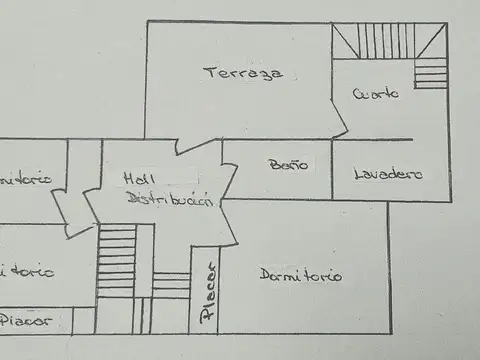 Terraza
Cuarto
mitorio
Hall
Distribución
Baño
Lavadero
itorio
Placar
Dormitorio
Placar